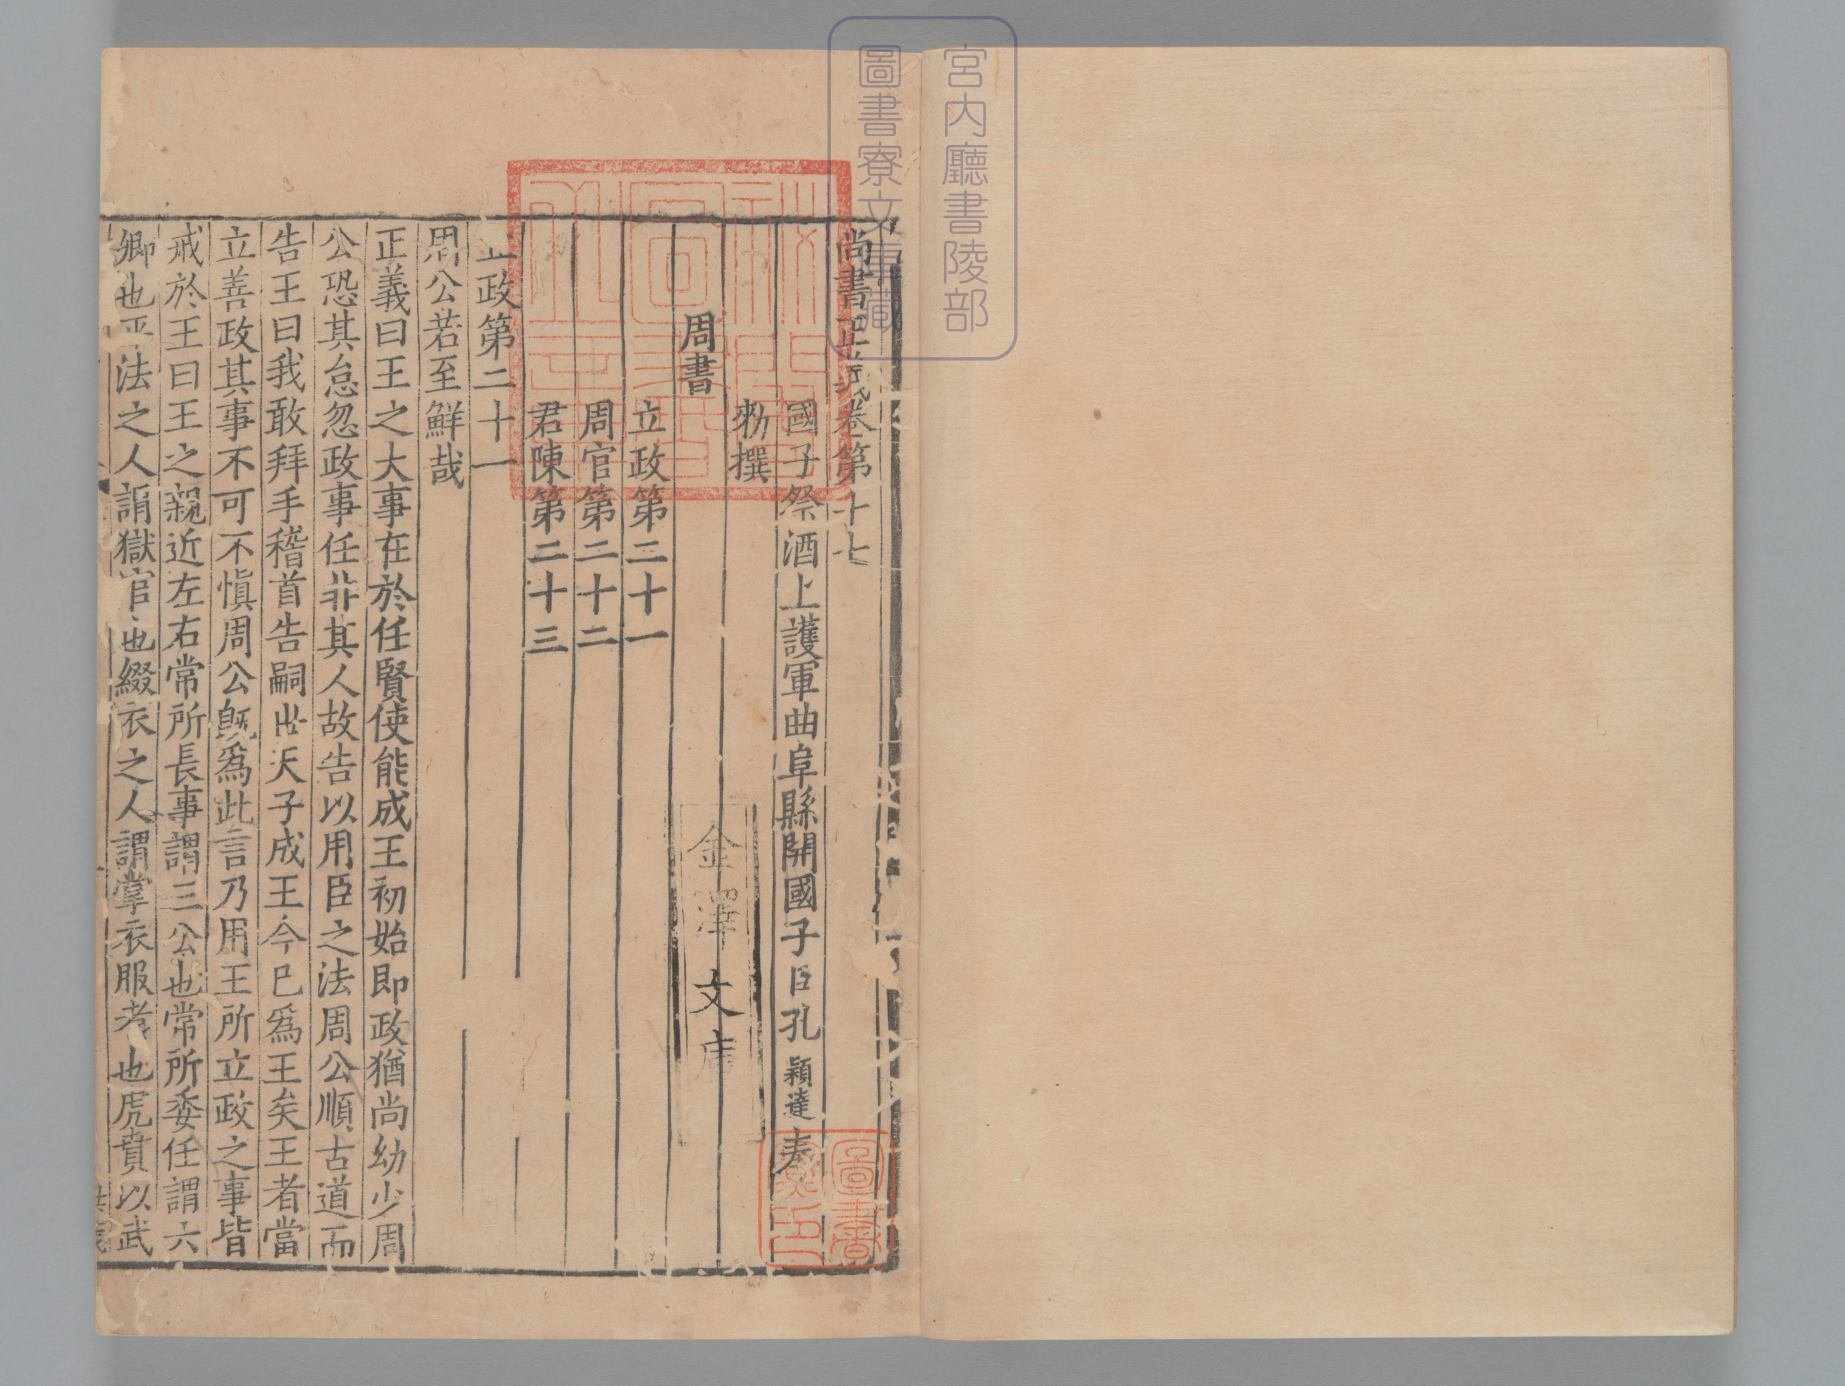 宮内廳書陵部
圖書寮文庫藏
尚書正義卷第十七
國子祭酒上護軍曲阜縣開國子臣孔穎達奉
勑撰
周書
立政第二十一
周官第二十二
君陳第二十三
立政第二十一
周公若至鮮哉
正義曰王之大事在於任賢使能成王初始即政猶尚幼少周
公恐其怠忽政事任非其人故告以用臣之法周公順古道而
告王曰我敢拜手稽首告嗣世天子成王今已爲王矣王者當
立善政其事不可不愼周公旣爲此言乃用王所立政之事皆
戒於王曰王之親近左右常所長事謂三公也常所委任謂六
卿也平法之人謂獄官也綴衣之人謂掌衣服者也虎賁以武
金澤文庫
圖書